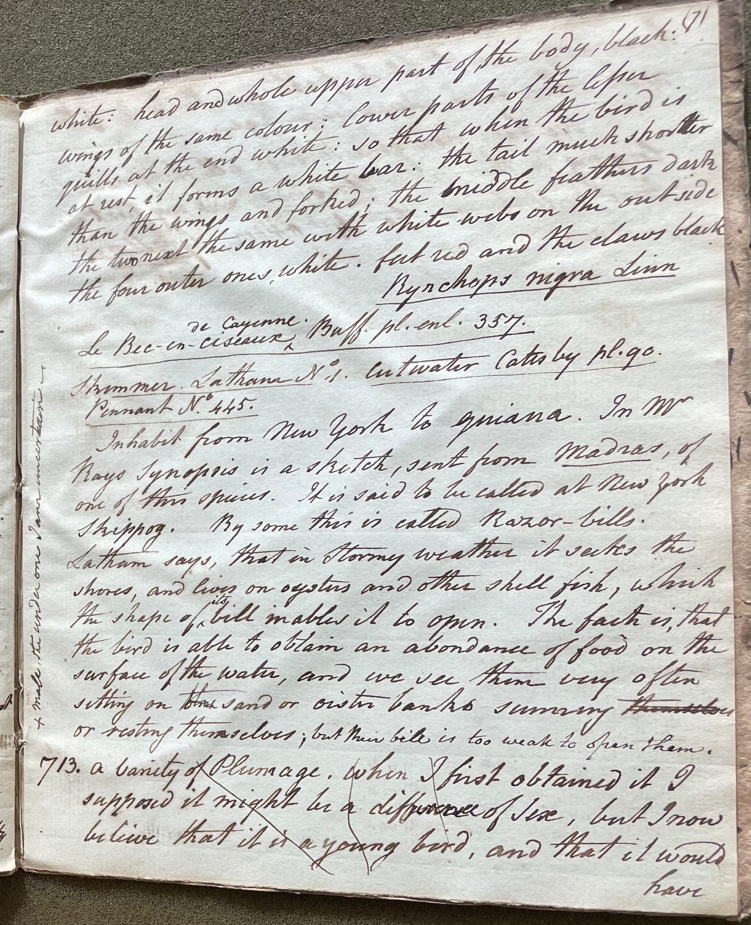 171
white: head and whole upper part of the body, black:
wings of the same colour: lower parts of the lesser
quills at the end white: so that when the bird is
at rest, it forms a white bar: the tail much shorter
than the wings and forked; the middle feathers dark
the two next the same with white webs on the outside
the four outer ones, white. feet red and the claws black
Rynchops nigra Linn
de Cayenne.
Le Bec-en-ciseaux ‸ Buff. pl. enl. 357.
Skimmer. Latham No. 1. Cutwater Catesby pl. 90.
Pennant No. 445.
Inhabit from New York to guiana. In Mr
Rays Synopsis is a sketch, sent from Madras, of
one of this species. It is said to be called at New york
Skippog. By some this is called Razor-bills.
Latham says, that in Stormy weather it seeks the
shores, and lives on oysters and other shell fish, which
its
the shape of ‸ bill inables it to open. The fact is, that
the bird is able to obtain an abundance of food on the
surface of the water, and we see them very often
sitting on sand or oister banks sunning themselves
or resting themselves; but their bill is too weak to open them.
713. a variety of Plumage. when I first obtained it I
supposed it might be a difference of Sex, but I now
believe that it is a young bird, and that it would
have
+ male, the under one I am uncertain